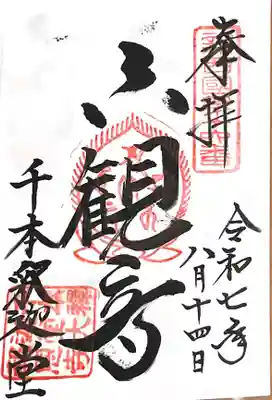 奉拝
令和七年
八月十四日
六観音
千本釈迦堂